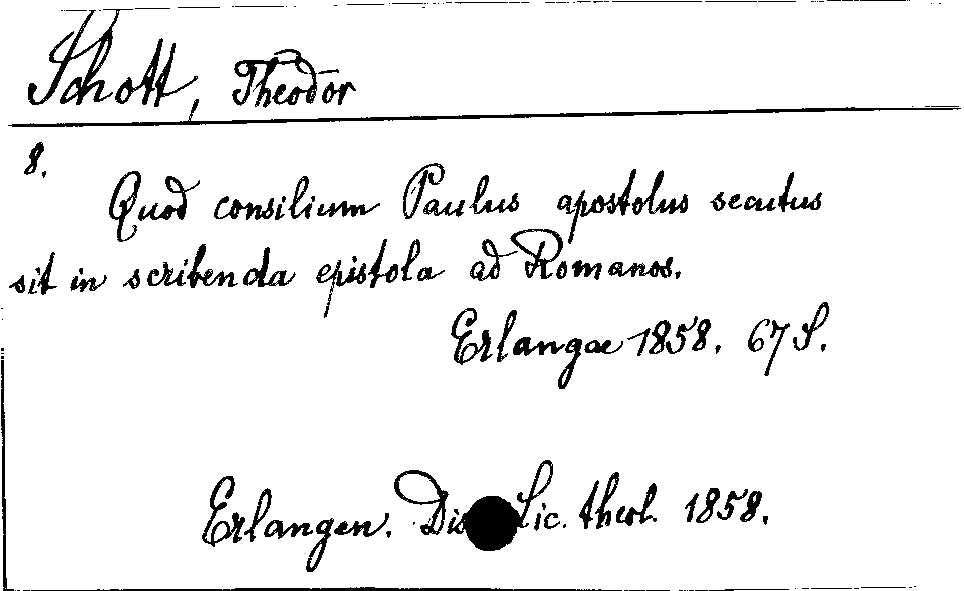 Schott, Theodor
8.
Quod consilium Paulus apostolus secutus
sit in scribenda epistola ad Romanos.
Erlangae 1858. 67 S.
Erlangen. Lic. theol. 1858.